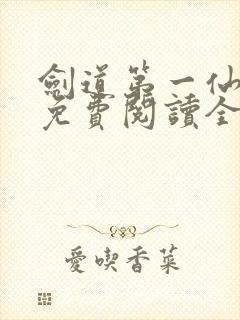 劍道第一仙
免費閱讀全
愛喫香菜